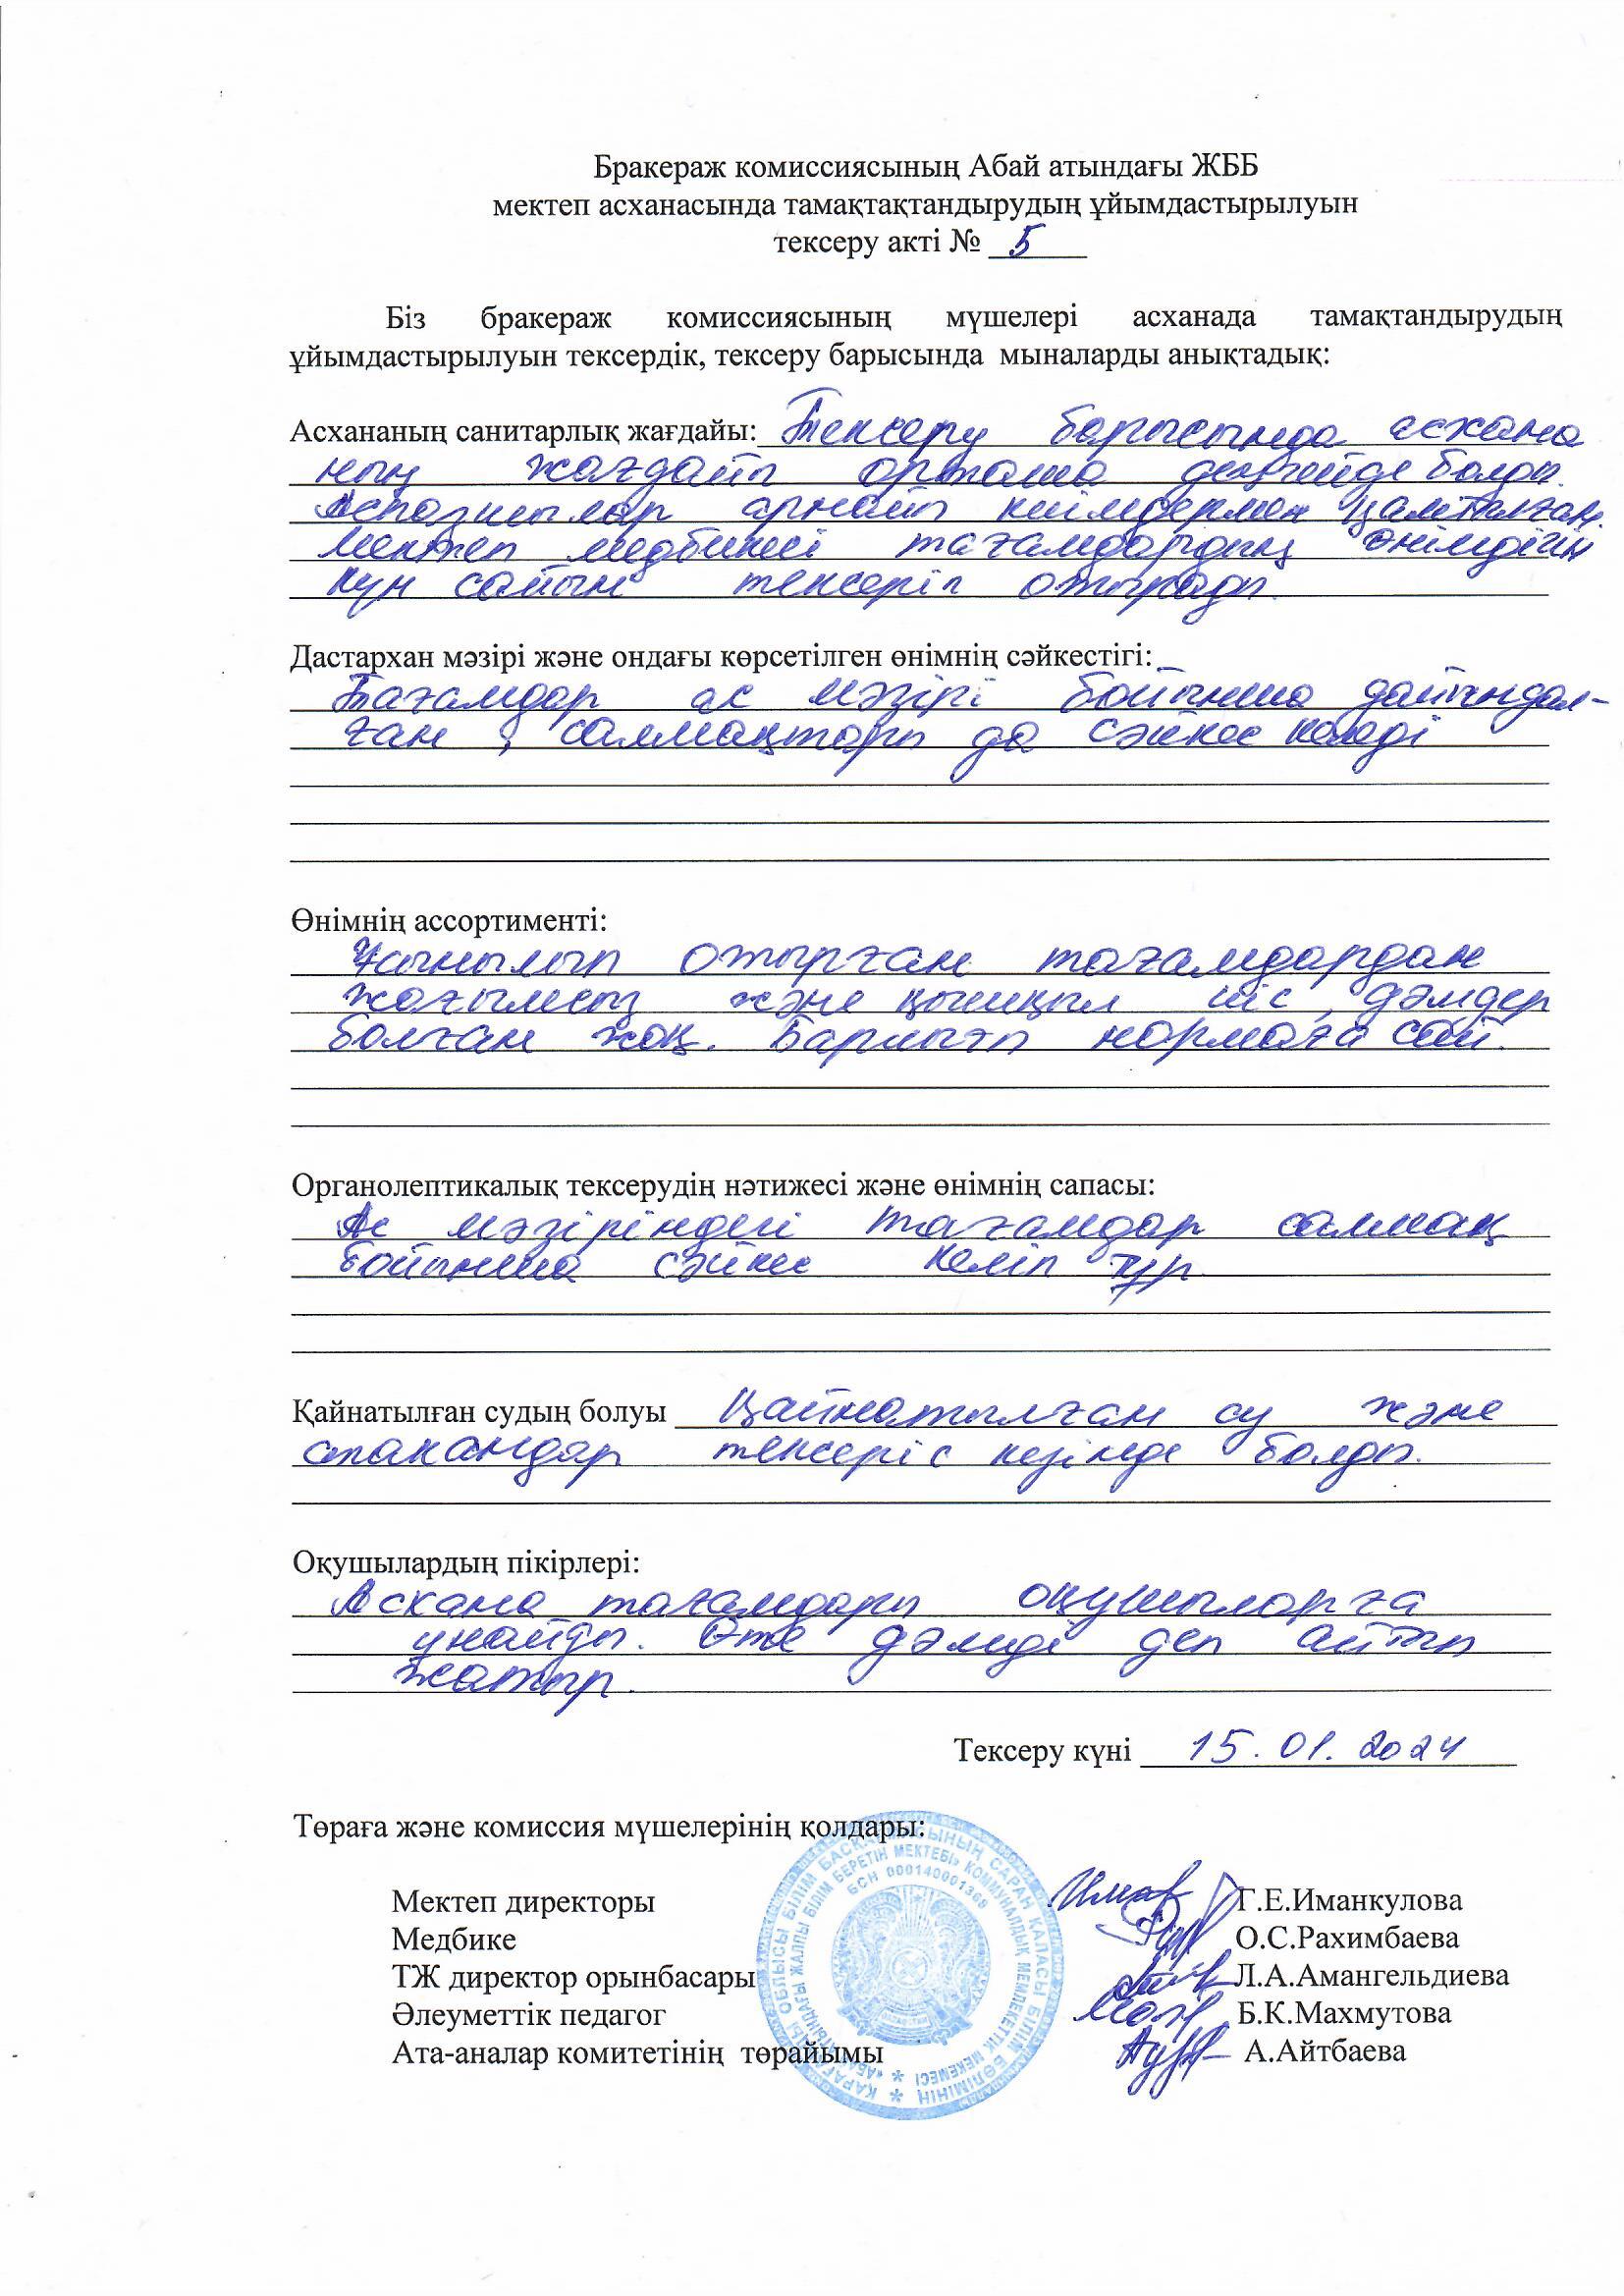 Бракераж комиссиясының Абай атындағы ЖББ
мектеп асханасында тамақтақтандырудың ұйымдастырылуын
тексеру акті № 5
Біз бракераж комиссиясының мүшелері асханада тамақтандырудың
ұйымдастырылуын тексердік, тексеру барысында мыналарды анықтадық:
Асхананың санитарлық жағдайы: Тексеру барысында асхана
ның жағдайы орташа деңгейде болды.
Аспазшылар арнайы киімдермен қамтылған.
Мектеп медбикесі тағамдардың өнімдігін
күн сайын тексеріп отырады.
Дастархан мәзірі және ондағы көрсетілген өнімнің сәйкестігі:
Тағамдар ас мәзірі бойынша дайындал-
ған, салмақтары да сәйкес келеді
Өнімнің ассортименті:
отырған тағамдардан
жағымсыз және қышқыл иіс, дәмдер
болған жоқ. Барлығы нормаға сай.
Органолептикалық тексерудің нәтижесі және өнімнің сапасы:
Ас мәзіріндегі тағамдар салмақ
бойынша сәйкес келіп тұр
Қайнатылған судың болуы Қайнатылған су және
стакандар тексеріс кезінде болды.
Оқушылардың пікірлері:
Асхана тағамдары оқушыларға
ұнайды. Өте дәмді деп айтып
жатыр.
Тексеру күні 15.01.2024
Төраға және комиссия мүшелерінің қолдары:
Мектеп директоры Г.Е.Иманкулова
Медбике О.С.Рахимбаева
ТЖ директор орынбасары Л.А.Амангельдиева
Әлеуметтік педагог Б.К.Махмутова
Ата-аналар комитетінің төрайымы А.Айтбаева
ҚАРАҒАНДЫ ОБЛЫСЫ БІЛІМ БАСҚАРМАСЫНЫҢ САРАН ҚАЛАСЫ БІЛІМ БӨЛІМІНІҢ
«АБАЙ АТЫНДАҒЫ ЖАЛПЫ БІЛІМ БЕРЕТІН МЕКТЕБІ» КОММУНАЛДЫҚ МЕМЛЕКЕТТІК МЕКЕМЕСІ
БСН 000140001369